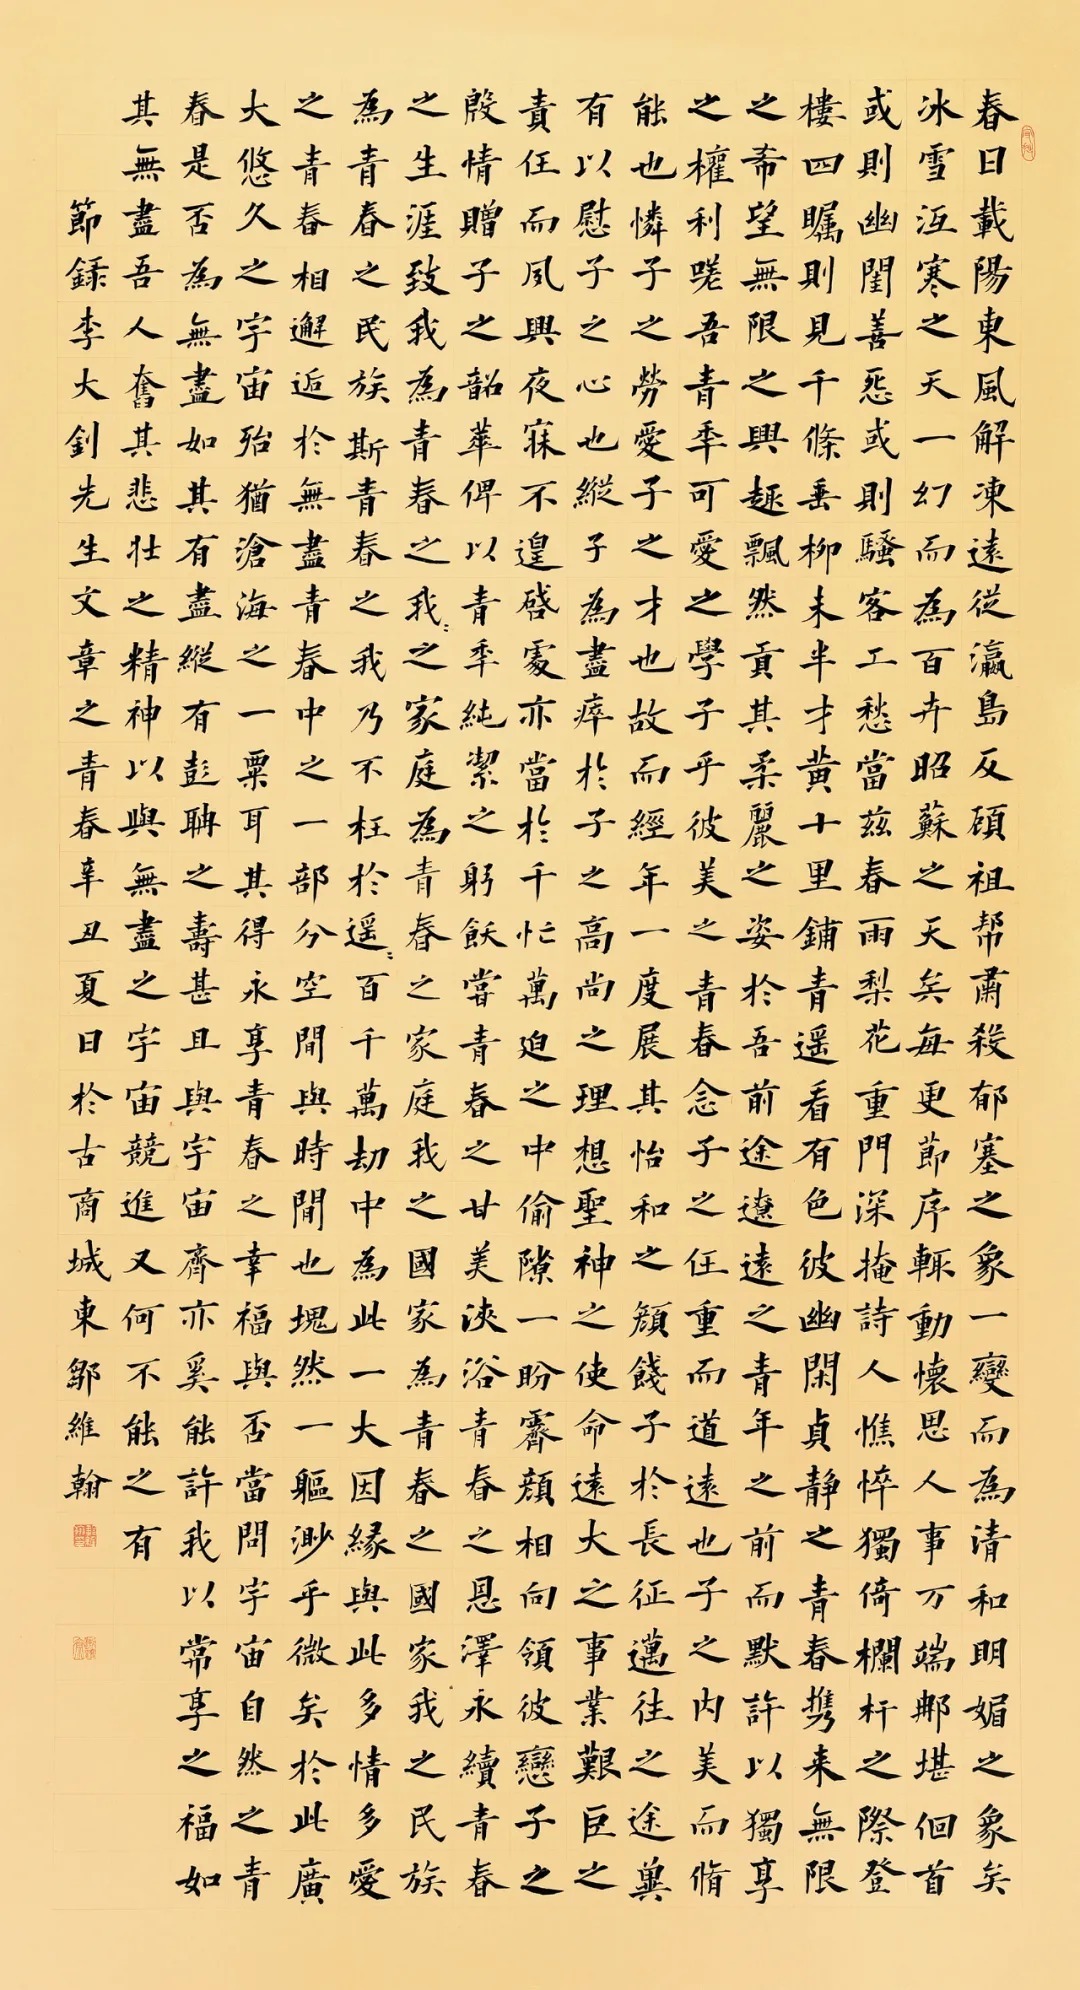 春日載陽東風解凍遠從瀛島反顧祖帮肅殺郁塞之象一變而為清和明媚之象矣
冰雪沍寒之天一幻而為百卉昭蘇之天矣每更節序輒動懷思人事万端那堪佪首
或則幽閨善怨或則騷客工愁當茲春雨梨花重門深掩詩人憔悴獨倚欄杆之際登
樓四矚則見千條垂柳未半才黃十里鋪青遥看有色彼幽閑貞静之青春携来無限
之希望無限之興趣飄然貢其柔麗之姿於吾前途遼遠之青年之前而默許以獨享
之權利嗟吾青秊可愛之學子乎彼美之青春念子之任重而道遠也子之内美而脩
能也憐子之勞愛子之才也故而經年一度展其怡和之顏餞子於長征邁往之途冀
有以慰子之心也縱子為盡瘁於子之高尚之理想聖神之使命遠大之事業艱巨之
責任而夙興夜寐不遑啓處亦當於千忙萬迫之中偷隙一盼霽顏相向領彼戀子之
殷情贈子之韶華俾以青秊純潔之躬飫嘗青春之甘美浹浴青春之恩澤永續青春
之生涯致我為青春之我々之家庭為青春之家庭我之國家為青春之國家我之民族
為青春之民族斯青春之我乃不枉於遥々百千萬劫中為此一大因緣與此多情多愛
之青春相邂逅於無盡青春中之一部分空間與時間也塊然一軀渺乎微矣於此廣
大悠久之宇宙殆猶滄海之一粟耳其得永享青春之幸福與否當問宇宙自然之青
春是否為無盡如其有盡縱有彭聃之壽甚且與宇宙齊亦奚能許我以常享之福如
其無盡吾人奮其悲壯之精神以與無盡之宇宙競進又何不能之有
節錄李大釗先生文章之青春辛丑夏日於古商城東鄒維翰